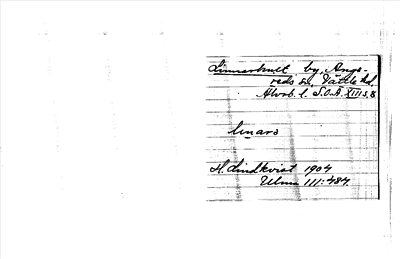 Linnarhult by, Ange-
reds sn, Vättle hd,
Älvsb. l. S.O.Ä. XIII s, 8
linars
H. Lindkvist 1904
Ulma 111:484.